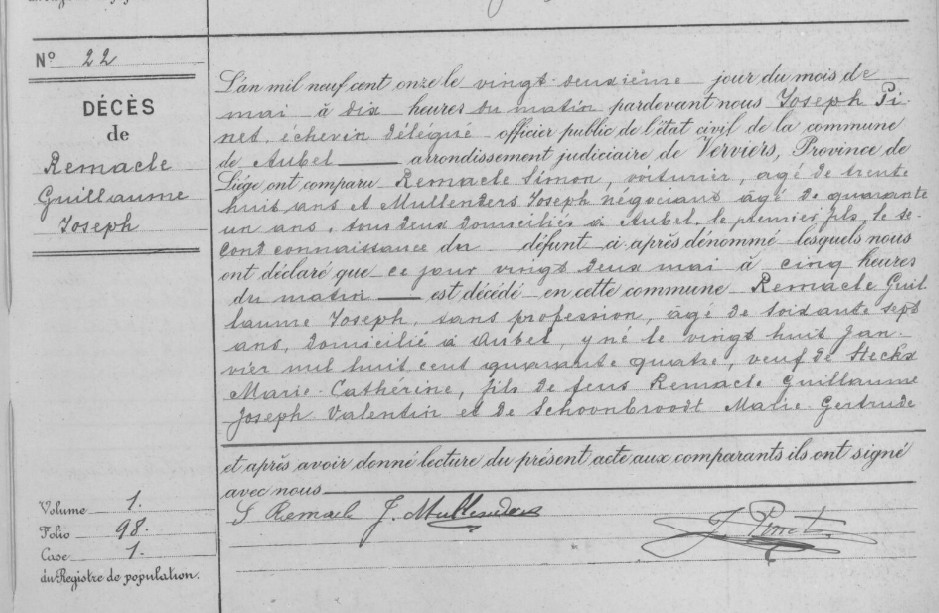 Nº 22
DÉCÈS
de
Remacle
Guillaume
Joseph
L'an mil neuf cent onze le vingt-deuxième jour du mois de
mai à dix heures du matin pardevant nous Joseph Pi-
net, échevin délégué officier public de l'état civil de la commune
de Aubel arrondissement judiciaire de Verviers, Province de
Liége ont comparu Remacle Simon, voiturier, âgé de trente
huit ans et Mullenders Joseph négociant âgé de quarante
un ans, tous deux domiciliés à Aubel, le premier fils, le se-
cond connaissance du défunt ci-après dénommé lesquels nous
ont déclaré que ce jour vingt deux mai à cinq heures
du matin est décédé en cette commune Remacle Guil
laume Joseph, sans profession, âgé de soixante sept
ans, domicilié à Aubel, y né le vingt huit jan-
vier mil huit cent quarante quatre, veuf de Steckx
Marie-Cathérine, fils de feus Remacle Guillaume
Joseph Valentin et de Schoonbroodt Marie-Gertrude
et après avoir donné lecture du présent acte aux comparants ils ont signé
avec nous
S Remacle J. Mullenders
J. Pinet
Volume 1.
Folio 98.
Case 1.
du Registre de population.